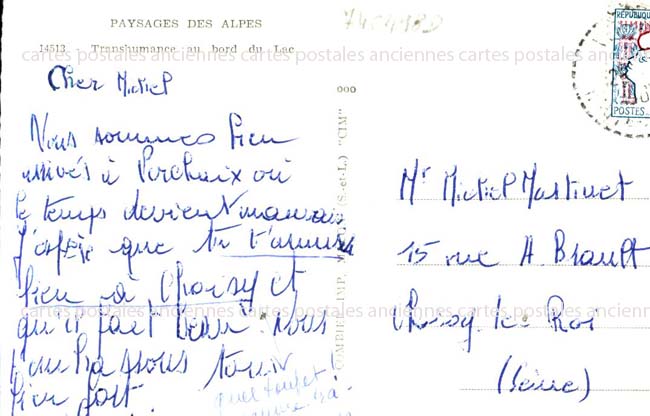 PAYSAGES DES ALPES
14513 - Transhumance au bord du Lac
cartes postales anciennes cartes postales anciennes cartes postales anciennes
Cher Michel
Nous sommes bien
arrivés à Perchaix où
le temps devient mauvais
J'espère que tu t'amuses
bien à Choisy et
qu'il fait beau. Nous
t'embrassons tous
bien fort
COMBIER IMP. MACON (S.-et-L.) "CIM"
RÉPUBLIQUE
POSTES
Mr Michel Martinet
15 rue A. Brault
Choisy le Roi
(Seine)
cartes postales anciennes cartes postales anciennes cartes postales anciennes